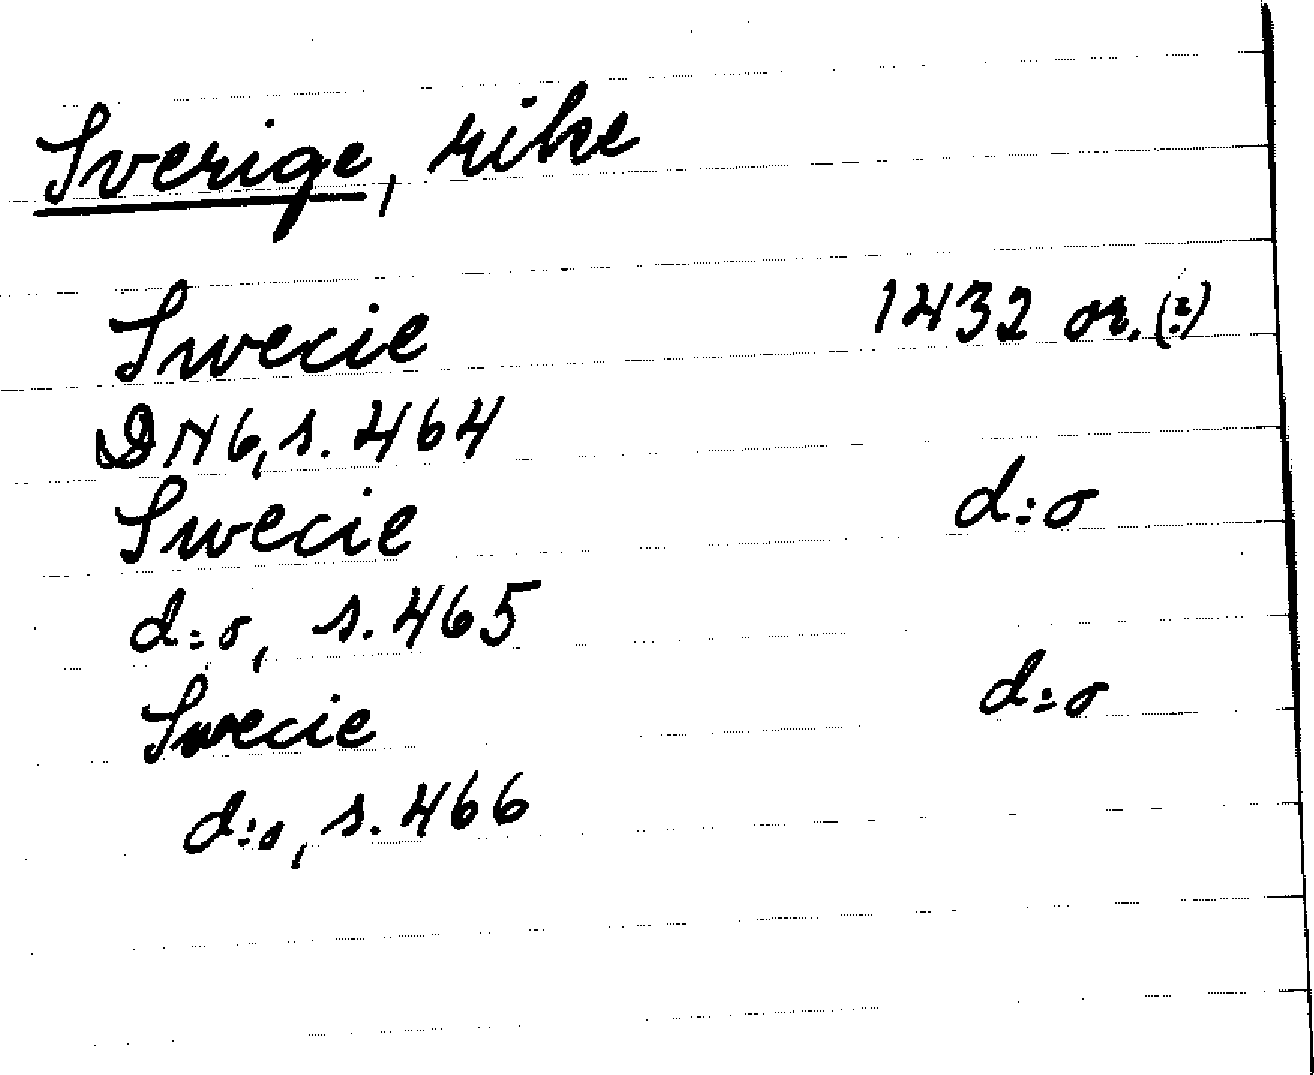 Sverige, rike
Swecie 1432 or. (?)
DN 6, s. 464
Swecie d:o
d:o, s. 465
Swecie d:o
d:o, s. 466